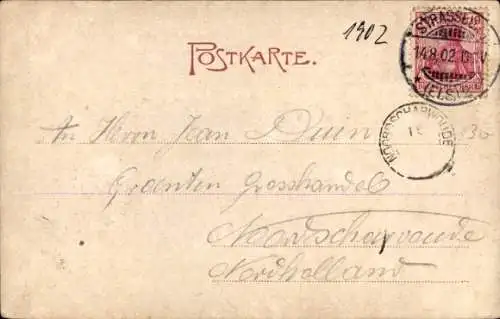 1902
STRASSBURG
14.8.02
(ELS)
POSTKARTE.
NOORDSCHARWOUDE
An Herrn Jean Duin
Groenten Grosshandel
Noordscharwoude
Nordholland